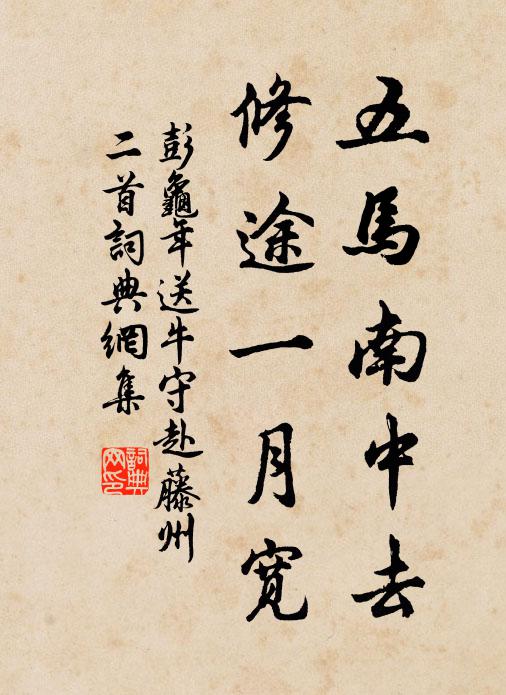 五馬南中去
修途一月寬
彭龜年送牛守赴藤州
二首詞典網集
詞典
网印